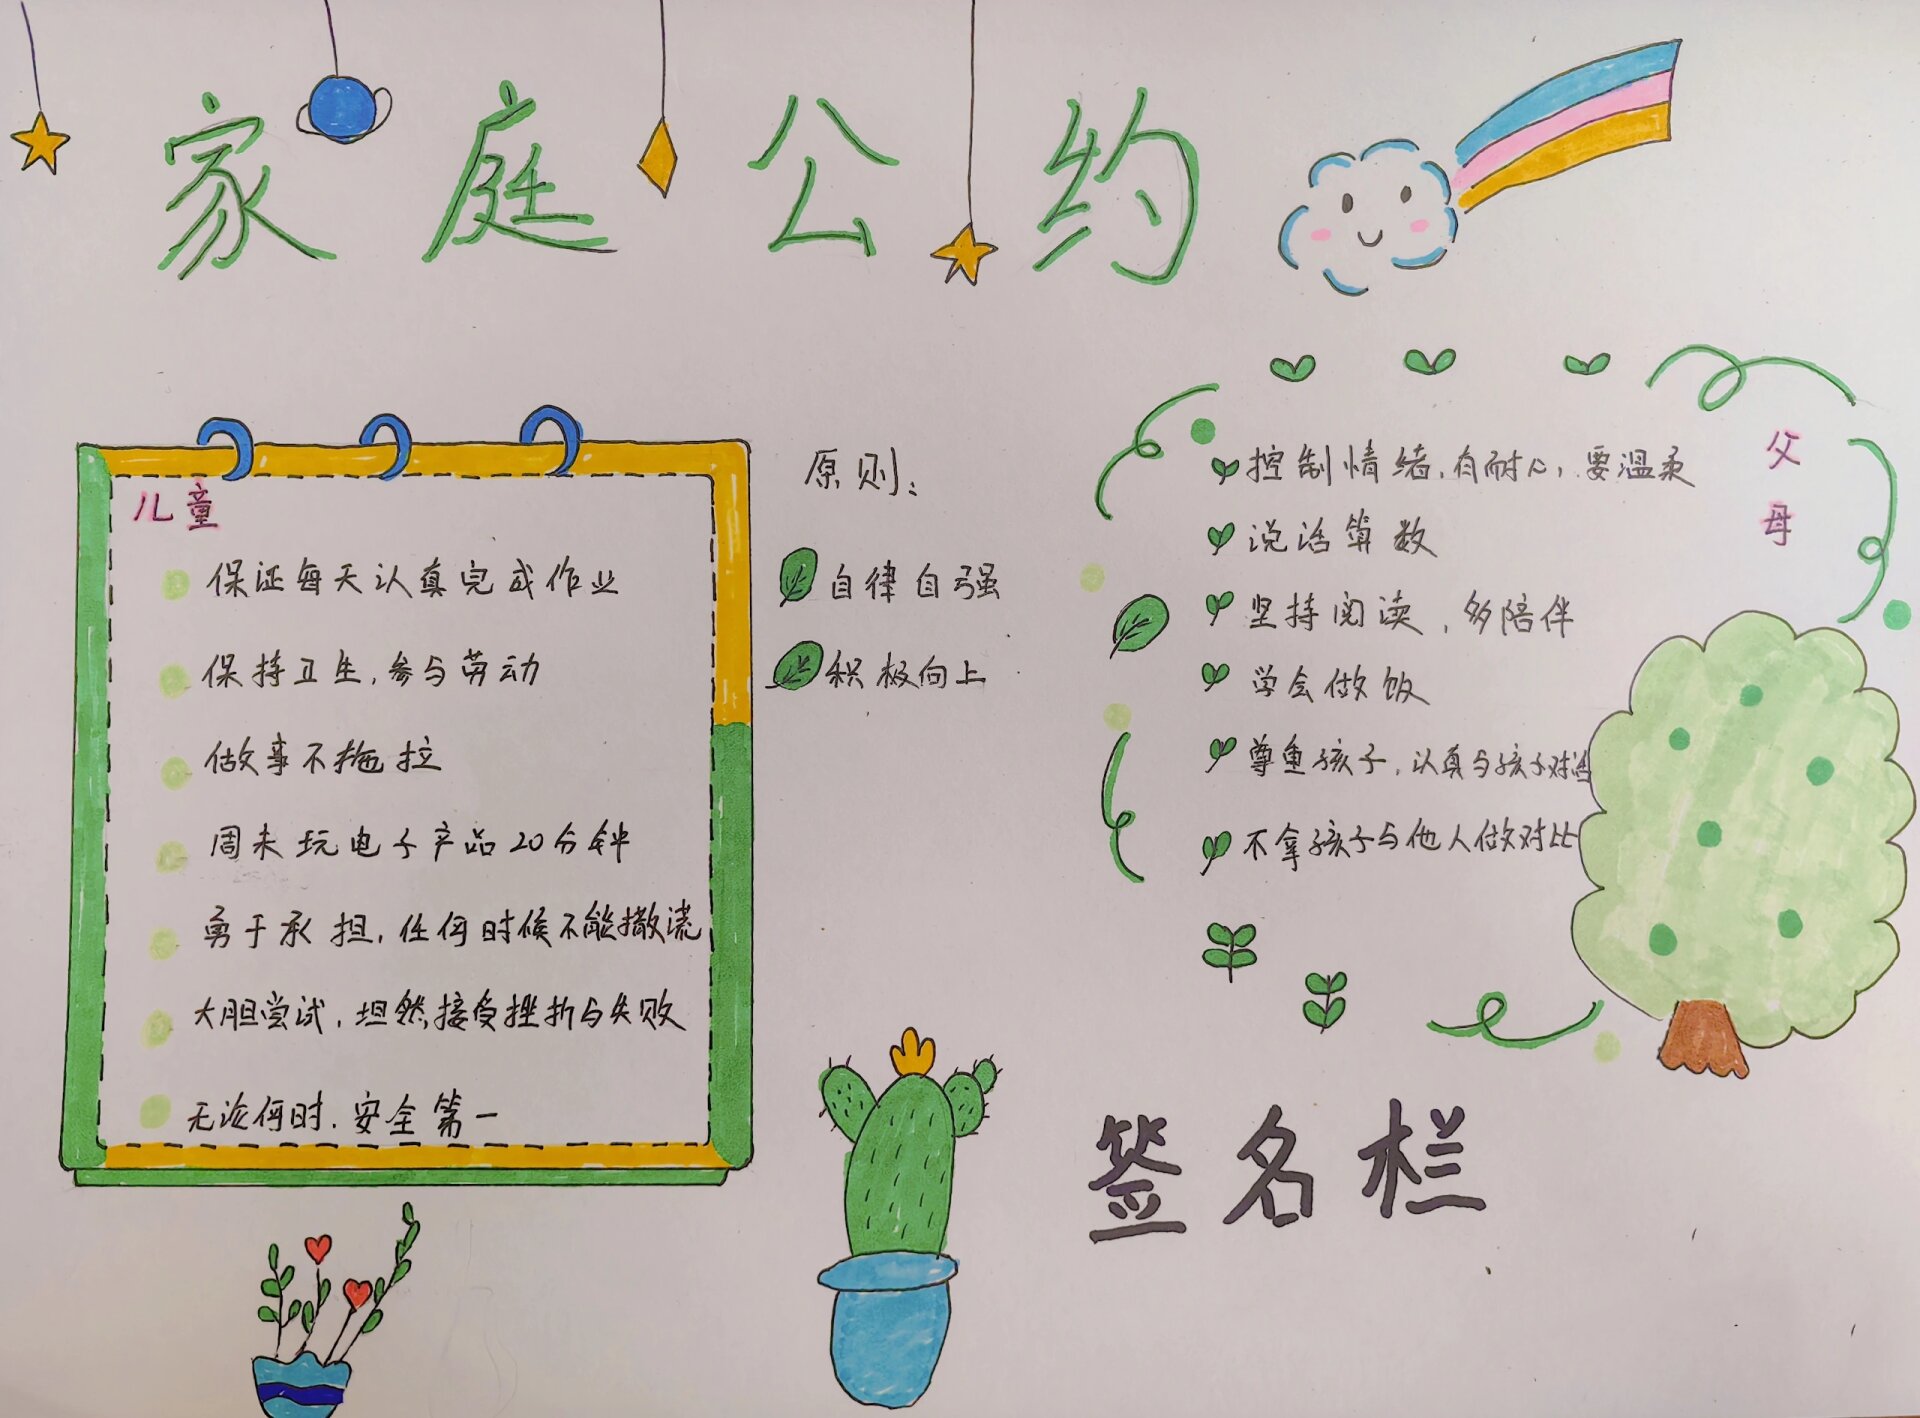 家庭公约
儿童
保证每天认真完成作业
保持卫生,参与劳动
做事不拖拉
周末玩电子产品20分钟
勇于承担,任何时候不能撒谎
大胆尝试,坦然接受挫折与失败
无论何时,安全第一
原则:
自律自强
积极向上
父母
控制情绪,有耐心,要温柔
说话算数
坚持阅读,多陪伴
学会做饭
尊重孩子,认真与孩子对话
不拿孩子与他人做对比
签名栏